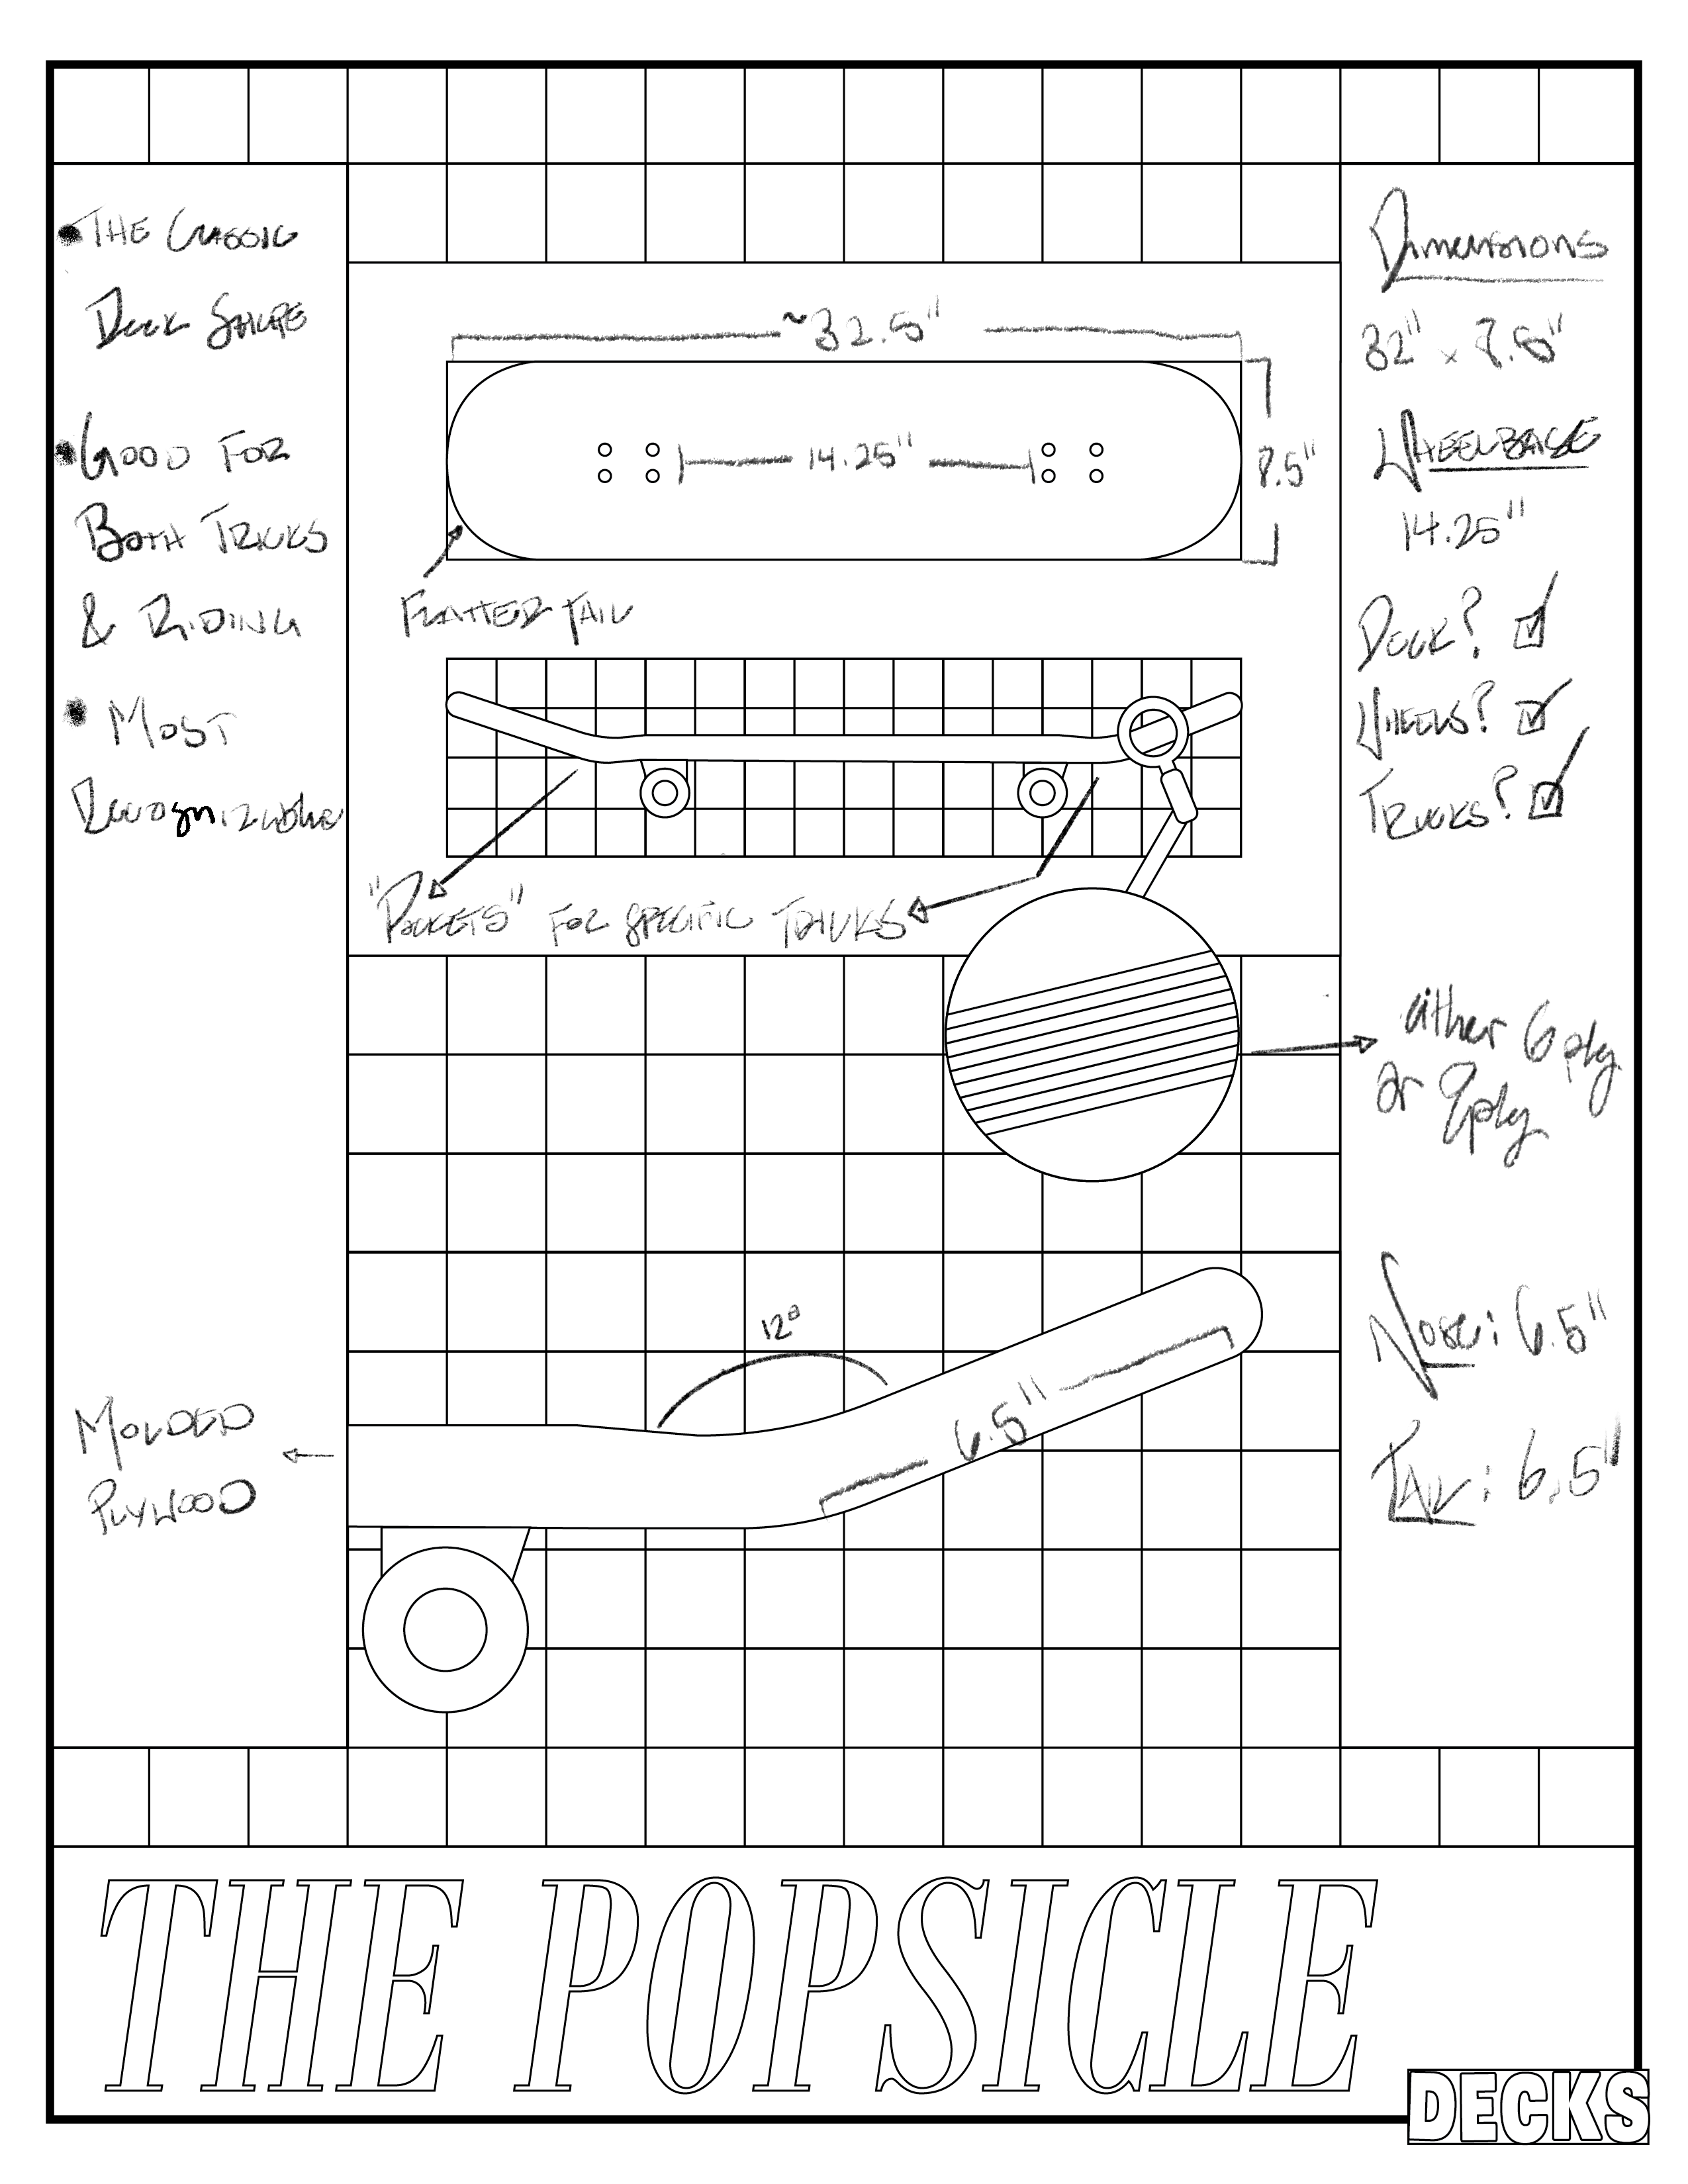 • THE CLASSIC
DECK SHAPE
• GOOD FOR
BOTH TRICKS
& RIDING
• MOST
Recognizable
~32.5"
14.25"
8.5"
FLATTER TAIL
"POCKETS" FOR SPECIFIC TRICKS
Dimensions
32" x 8.5"
WHEELBASE
14.25"
DECK? ☑
WHEELS? ☑
TRUCKS? ☑
either 6 ply
or 9ply
12°
6.5"
Nose: 6.5"
TAIL: 6.5"
MOLDED
PLYWOOD
THE POPSICLE
DECKS